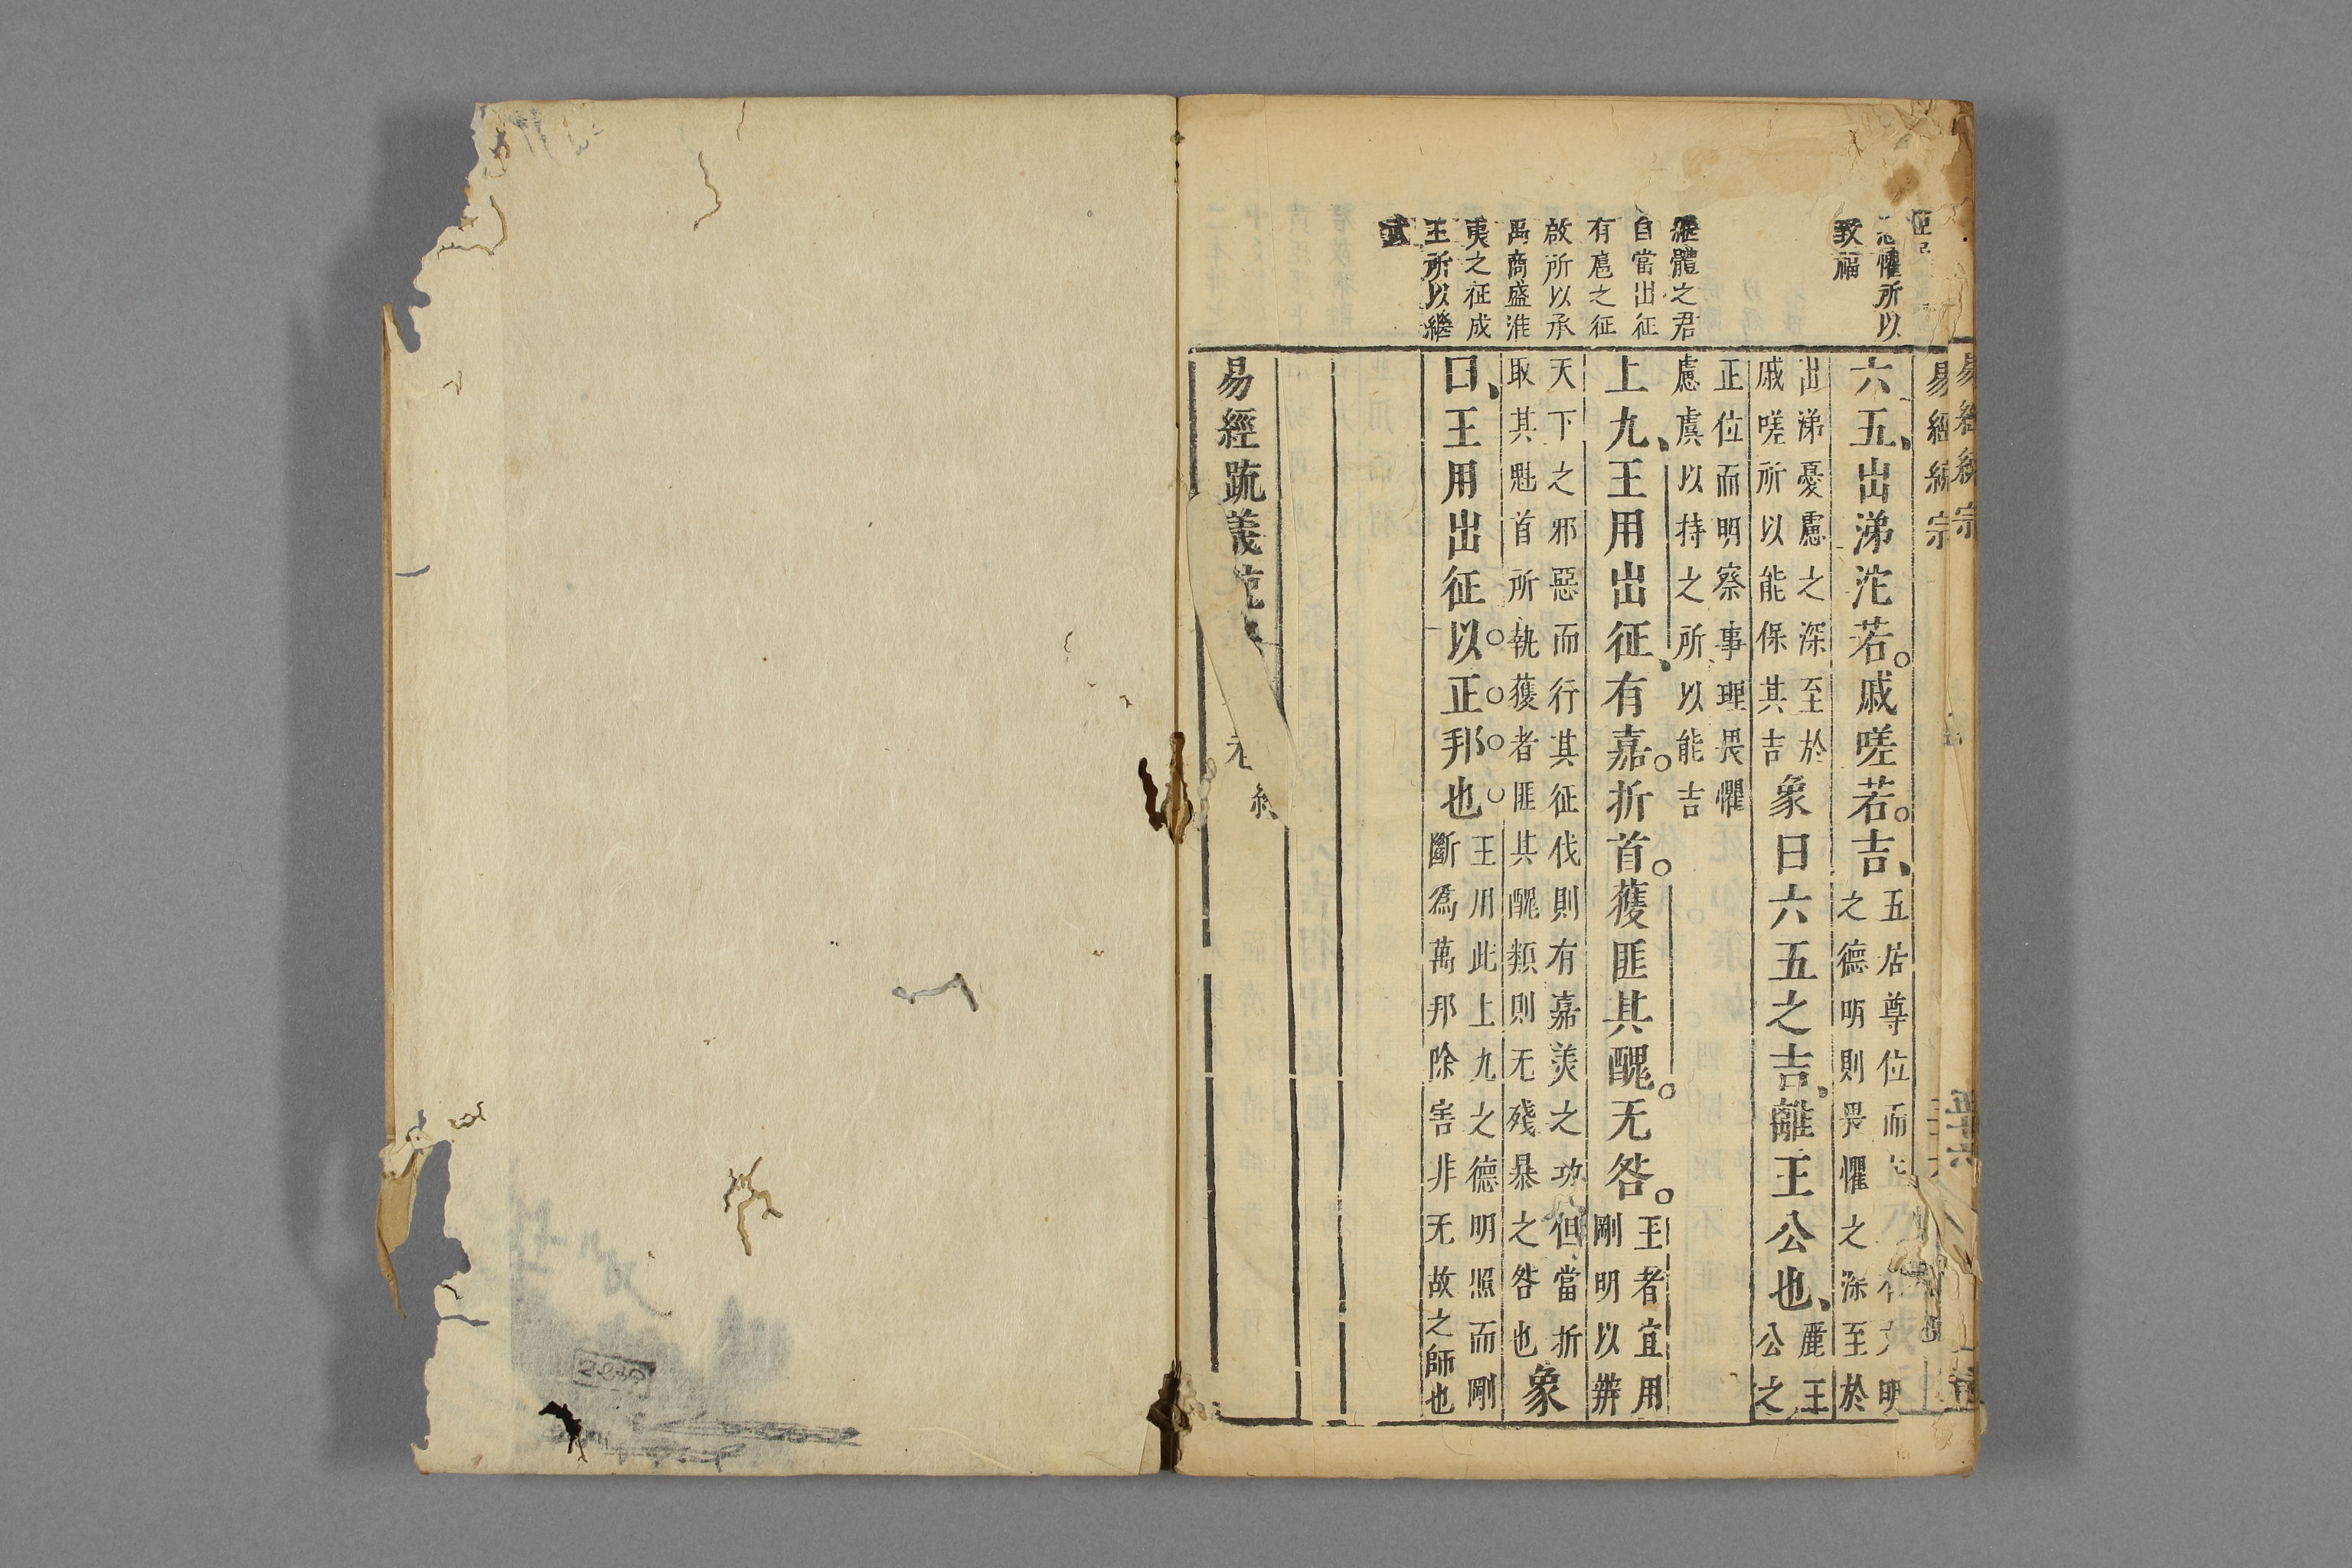 懼所以
致福
繼體之君
自當出征
有扈之征
啟所以承
禹商盛淮
夷之征成
王所以繼
武
六五、出涕沱若。戚嗟若。吉、五居尊位而
之德明則畏懼之深至於
出涕憂慮之深至於
戚嗟所以能保其吉象曰六五之吉、離王公也、麗王
公之
正位而明察事理畏懼
慮虞以持之所以能吉
上九、王用出征、有嘉。折首。獲匪其醜。无咎。王者宜用
剛明以辨
天下之邪惡而行其征伐則有嘉美之功但當折
取其魁首所執獲者匪其醜類則无殘暴之咎也象
曰、王用出征以正邦也王用此上九之德明照而剛
斷為萬邦除害非无故之師也
易經疏義